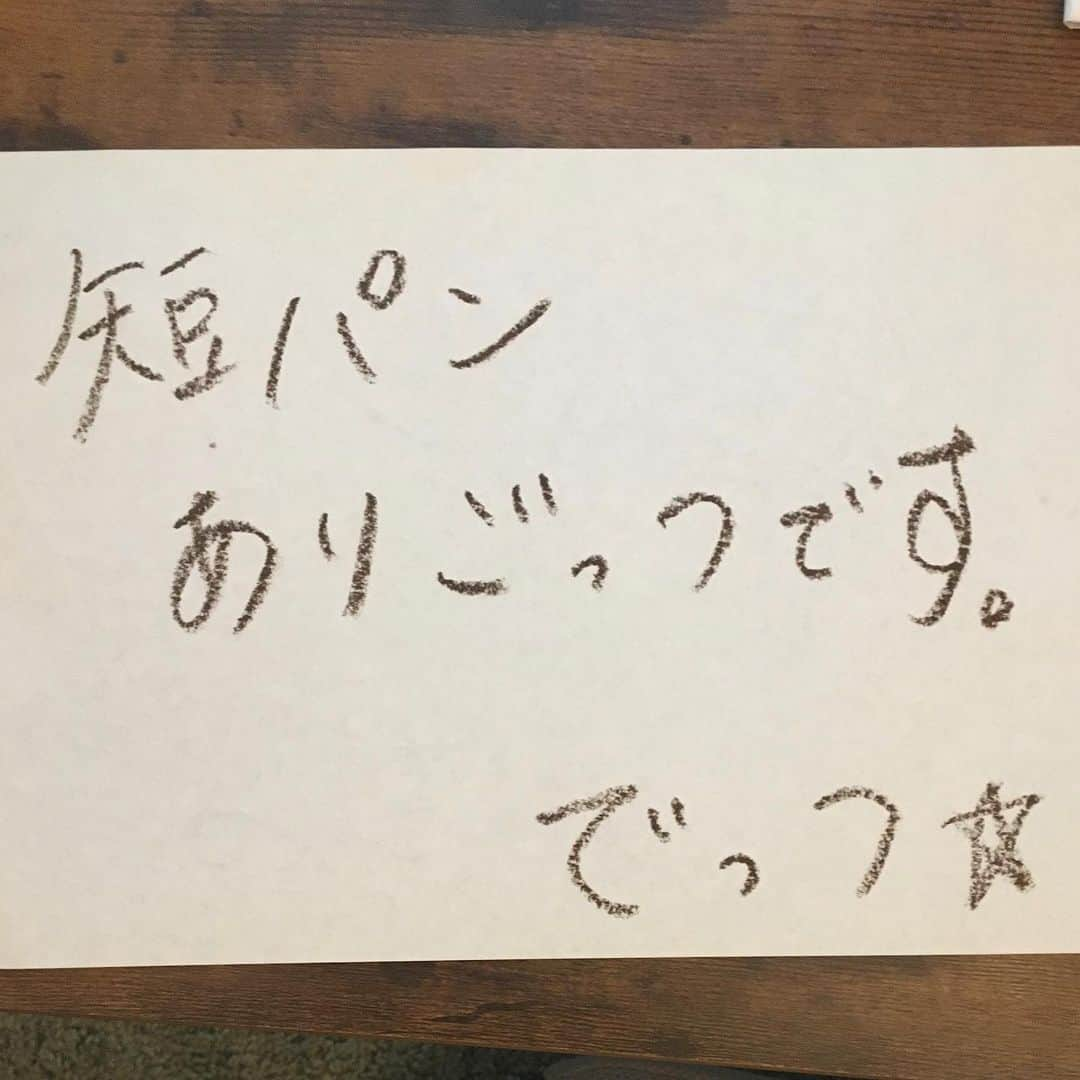 短パン
ありごっつです。
でっつ☆